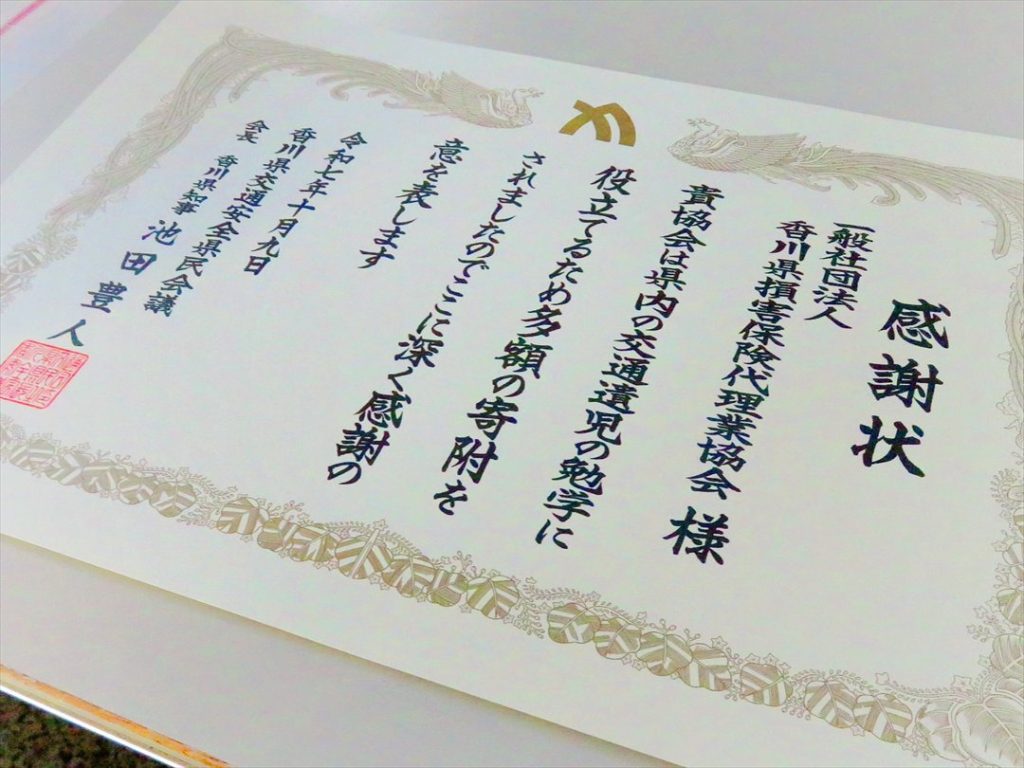 感謝状
一般社団法人
香川県損害保険代理業協会 様
貴協会は県内の交通遺児の勉学に
役立てるため多額の寄附を
されましたのでここに深く感謝の
意を表します
令和七年十月九日
香川県交通安全県民会議
会長 香川県知事 池田豊人